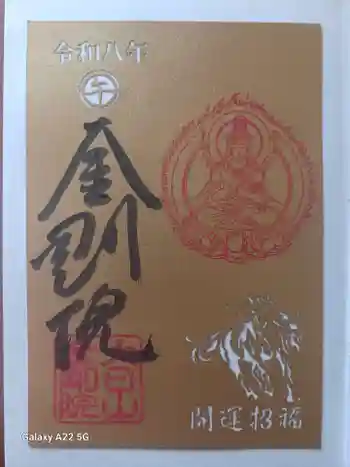 令和八午
午
金剛院
開運招福
Galaxy A22 5G